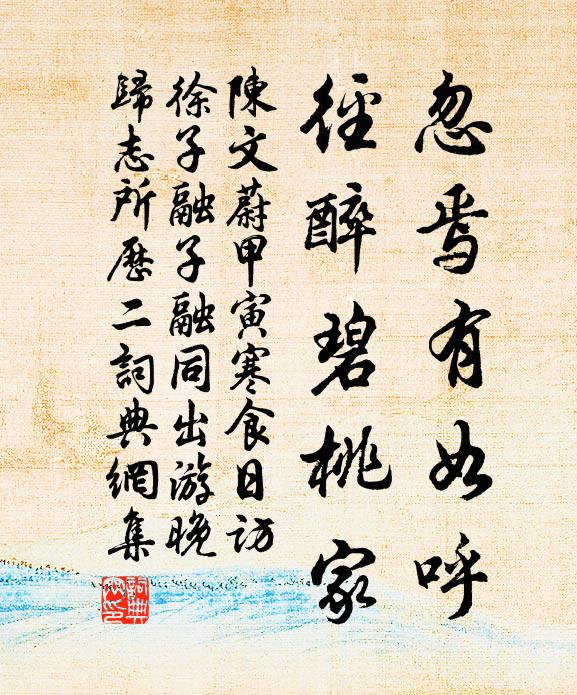 忽焉有如呼
徑醉碧桃家
陳文蔚甲寅寒食日訪
徐子融子融同出游晚
歸志所歷二詞典網集